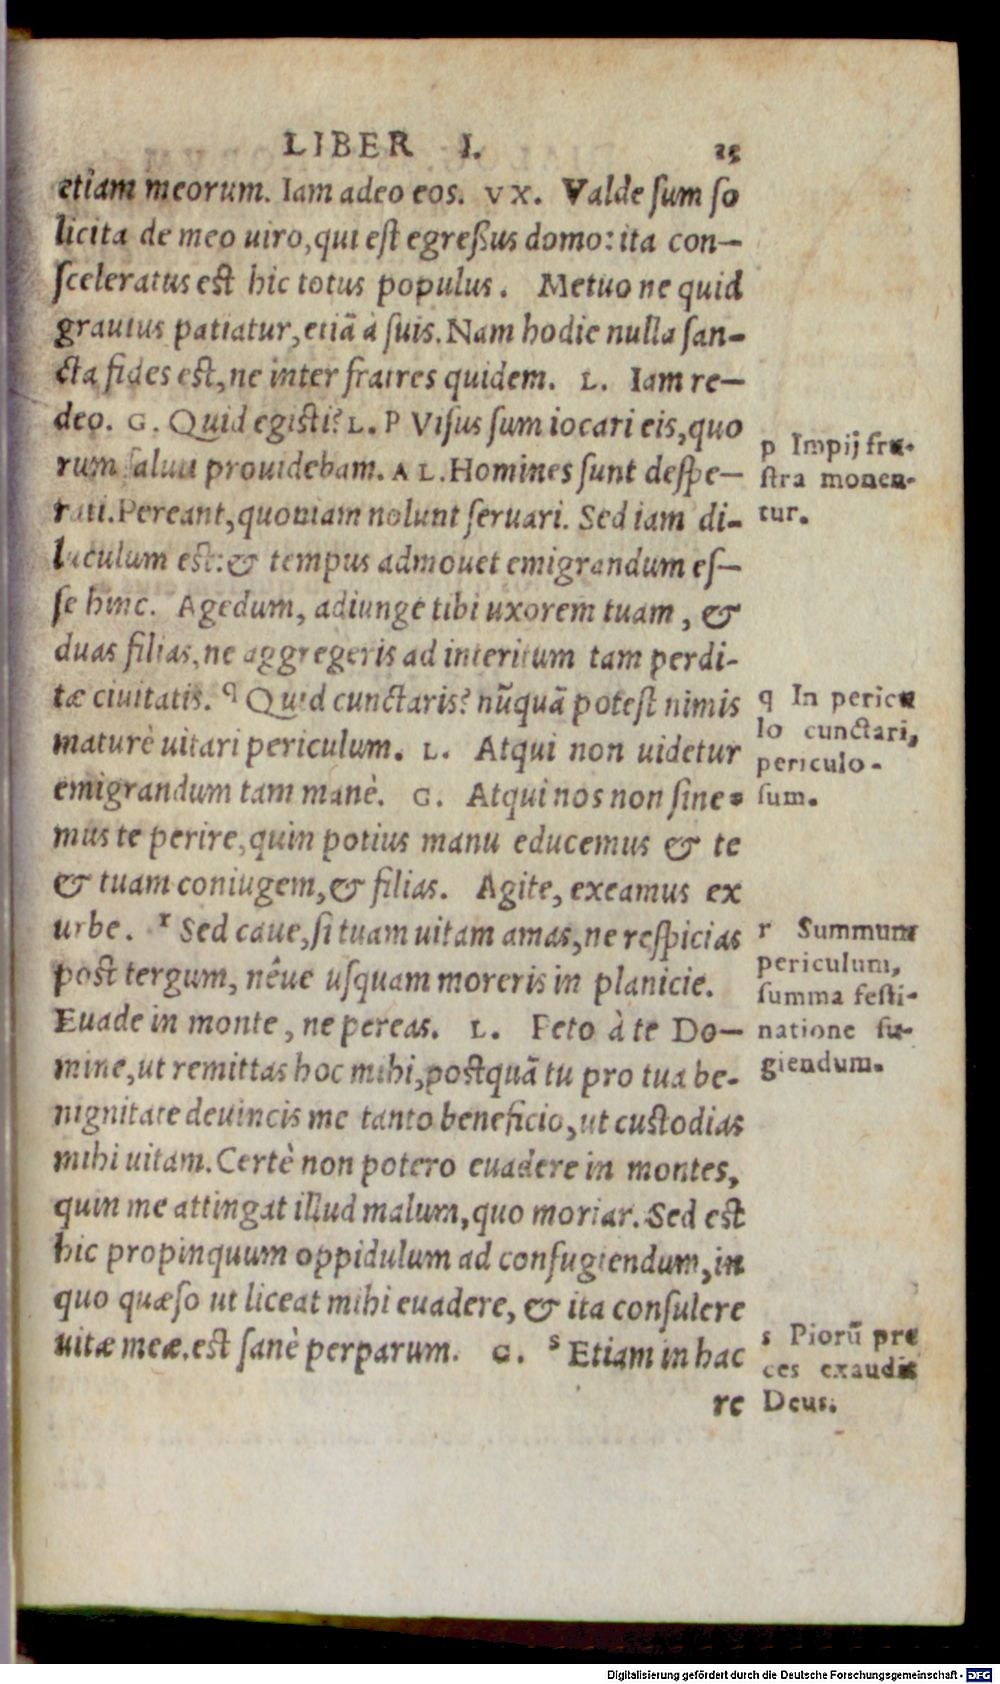 LIBER I. 25
etiam meorum. Iam adeo eos. VX. Valde ſum ſo
licita de meo uiro, qui eſt egreßus domo: ita con—
ſceleratus eſt hic totus populus. Metuo ne quid
grauius patiatur, etiã à ſuis. Nam hodie nulla ſan-
cta fides eſt, ne inter fratres quidem. L. Iam re—
deo. G. Quid egiſti? L. P Viſus ſum iocari eis, quo
rum ſaluti prouidebam. AL. Homines ſunt deſpe—
rati. Pereant, quoniam nolunt ſeruari. Sed iam di-
luculum eſt: & tempus admouet emigrandum eſ—
ſe hinc. Agedum, adiunge tibi uxorem tuam, &
duas filias, ne aggregeris ad interitum tam perdi-
tæ ciuitatis. q Quid cunctaris? nũquã poteſt nimis
maturè uitari periculum. L. Atqui non uidetur
emigrandum tam manè. G. Atqui nos non ſine-
mus te perire, quin potius manu educemus & te
& tuam coniugem, & filias. Agite, exeamus ex
urbe. r Sed caue, ſi tuam uitam amas, ne reſpicias
poſt tergum, nêue uſquam moreris in planicie.
Euade in monte, ne pereas. L. Peto à te Do—
mine, ut remittas hoc mihi, poſtquã tu pro tua be-
nignitate deuincis me tanto beneficio, ut cuſtodias
mihi uitam. Certè non potero euadere in montes,
quin me attingat illud malum, quo moriar. Sed eſt
hic propinquum oppidulum ad confugiendum, in
quo quæſo ut liceat mihi euadere, & ita conſulere
uitæ meæ. eſt ſanè perparum. G. s Etiam in hac
re
p Impij fru-
ſtra monen-
tur.
q In pericu
lo cunctari,
periculo-
ſum.
r Summum
periculum,
ſumma feſti-
natione fu-
giendum.
s Piorũ pre
ces exaudit
Deus.
Digitalisierung gefördert durch die Deutsche Forschungsgemeinschaft - DFG